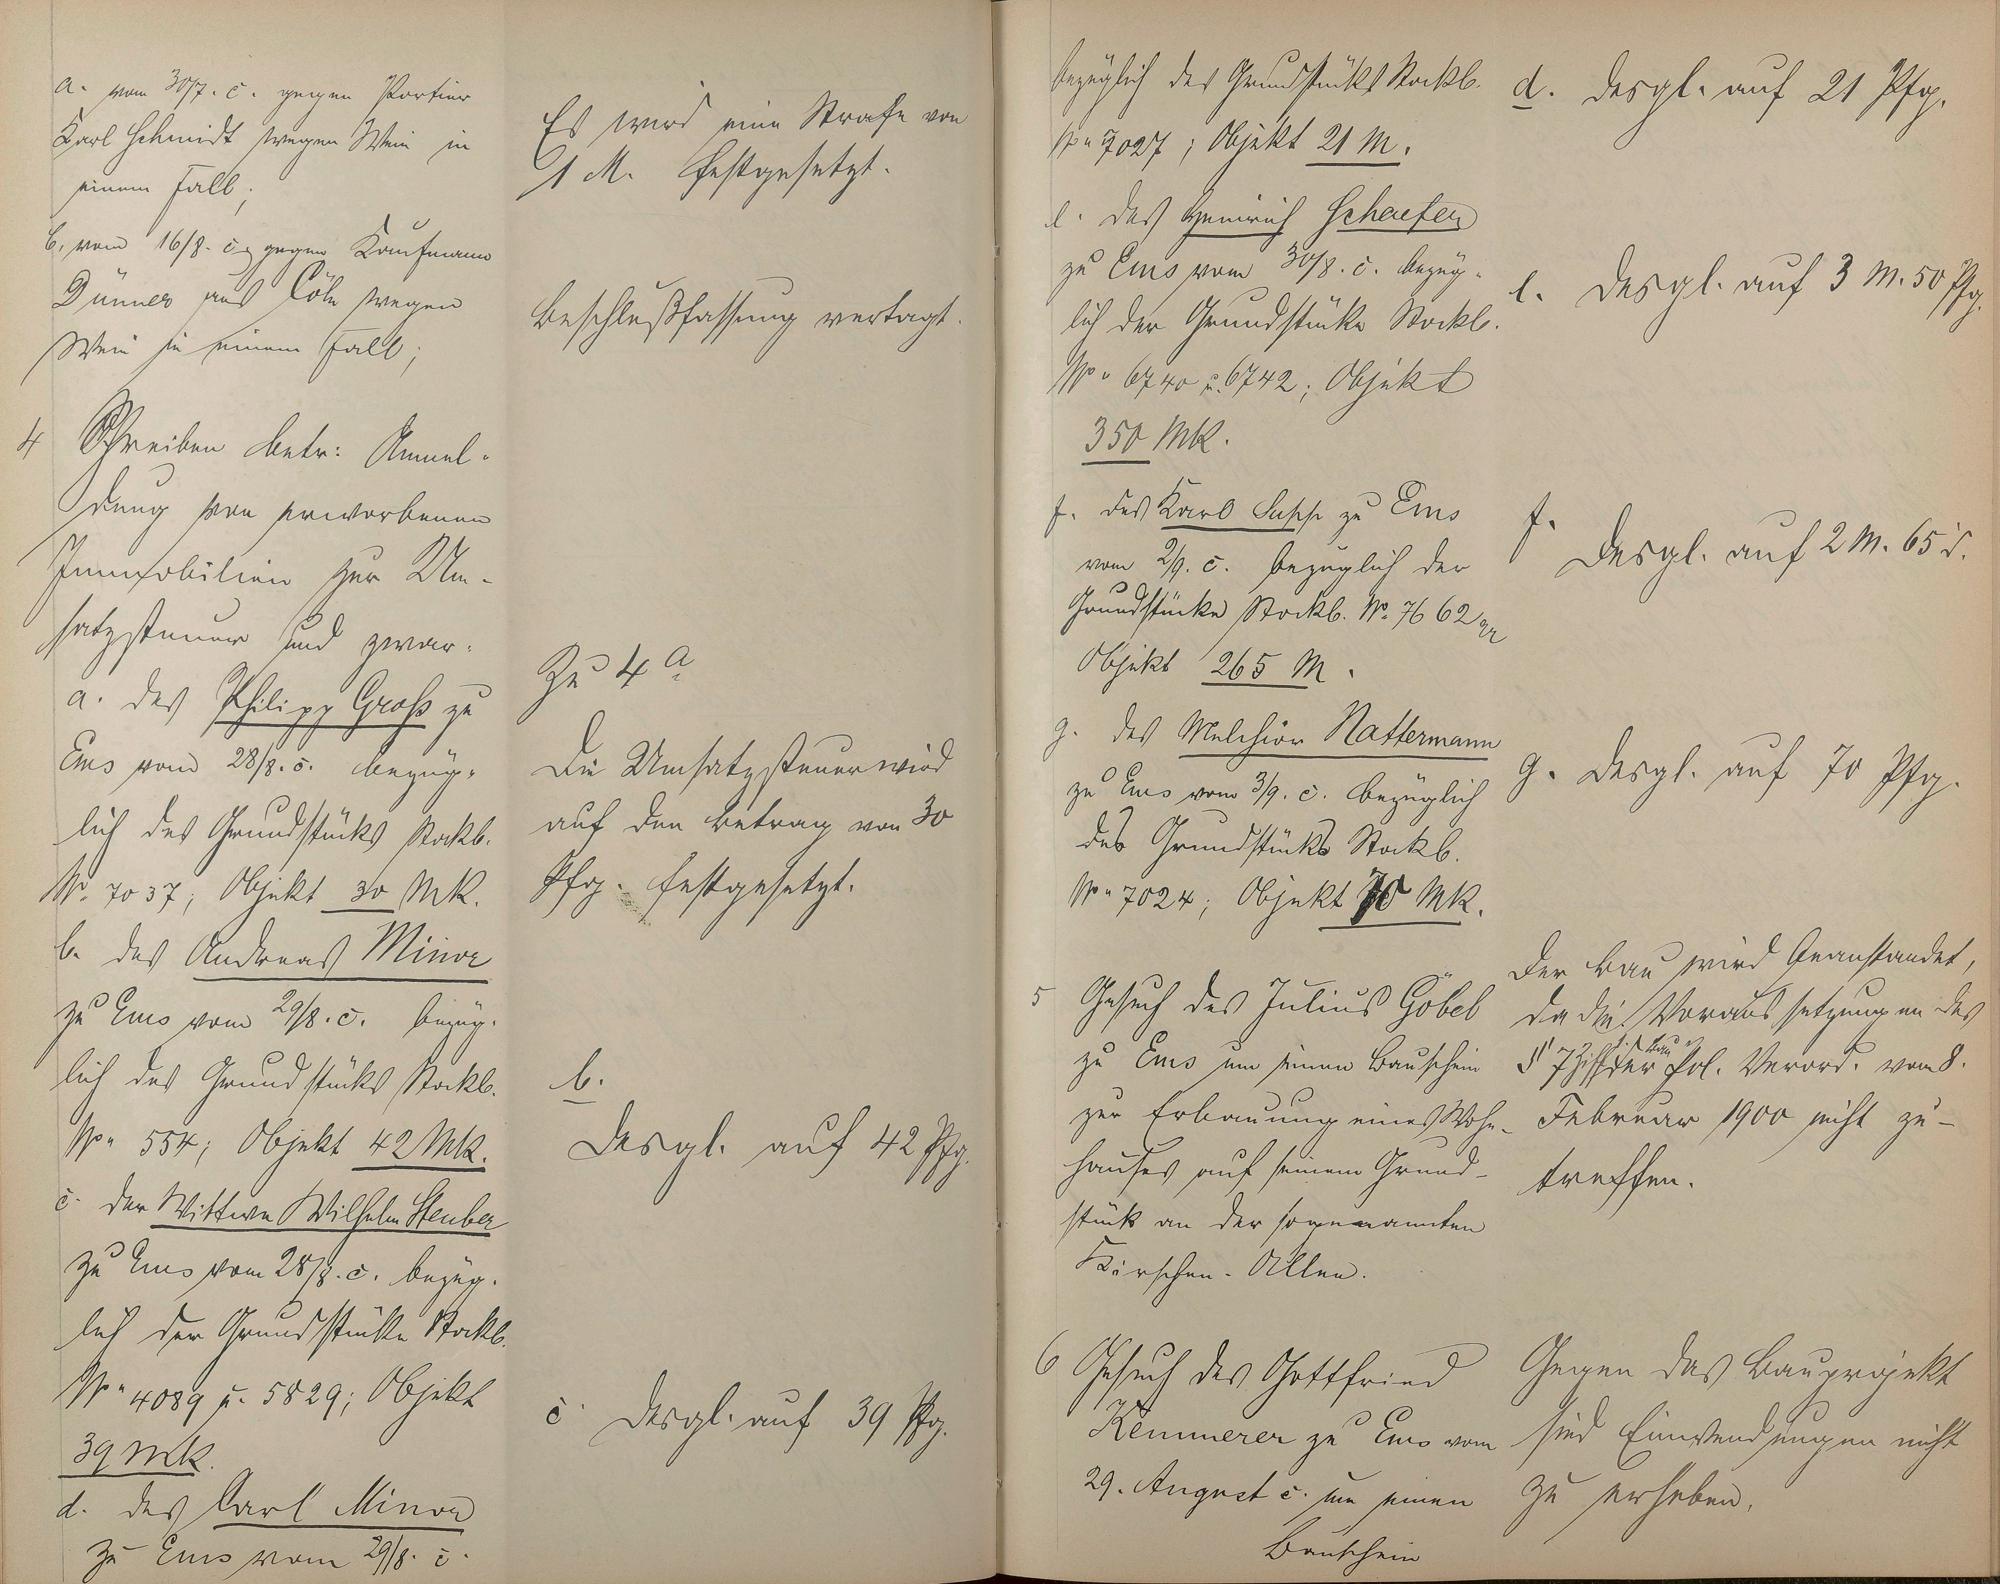 a. vom 30/7. c. gegen Portier
Karl Schmidt wegen Wein in
einem Fall;
b. vom 16/8. c. gegen Kaufmann
Dünner aus Cöln wegen
Wein in einem Fall;
4 Schreiben betr: Anmel-
dung von erworbenen
Immobilien zur Um-
satzsteuer und zwar:
a. des Philipp Groß zu
Ems vom 28/8. c. bezüg-
lich des Grundstücks Stockb.
No. 7037; Objekt 30 Mk.
b. des Andreas Minor
zu Ems vom 29/8. c. bezüg-
lich des Grundstücks Stockb.
No. 554; Objekt 42 Mk.
c. der Wittwe Wilhelm Steuber
zu Ems vom 28/8. c. bezüg-
lich der Grundstücke Stockb.
No. 4089 u. 5829; Objekt
39 Mk.
d. des Carl Minor
zu Ems vom 29/8. c.
Es wird eine Strafe von
1 M. festgesetzt.
Beschlußfassung vertagt.
Zu 4 a
Die Umsatzsteuer wird
auf den Betrag von 30
Pfg. festgesetzt.
b.
Desgl. auf 42 Pfg.
c. Desgl. auf 39 Pfg.
bezüglich des Grundstücks Stockb.
No. 7027; Objekt 21 M.
e. des Heinrich Schaefer
zu Ems vom 30/8. c. bezüg-
lich der Grundstücke Stockb.
No. 6740 u. 6742; Objekt
350 Mk.
f. des Karl zu Ems
vom 2/9. c. bezüglich der
Grundstücke Stockb. No. 7662
Objekt 265 M.
g. des Melchior Nattermann
zu Ems vom 3/9. c. bezüglich
des Grundstücks Stockb.
No. 7024; Objekt 70 Mk.
5 Gesuch des Julius Göbel
zu Ems um einen Bauschein
zur Erbauung eines Wohn-
hauses auf seinem Grund-
stück an der sogenannten
Kirschen-Allee.
6 Gesuch des Gottfried
Kemmerer zu Ems vom
29. August c. um einen
Bauschein
d. Desgl. auf 21 Pfg.
e. Desgl. auf 3 M. 50 Pfg.
f. Desgl. auf 2 M. 65
g. Desgl. auf 70 Pfg.
Der Bau wird beanstandet,
da die Voraussetzungen des
§ 7 Ziff der Bau Pol. Verord. vom 8.
Februar 1900 nicht zu-
treffen.
Gegen das Bauprojekt
sind Einwendungen nicht
zu erheben.